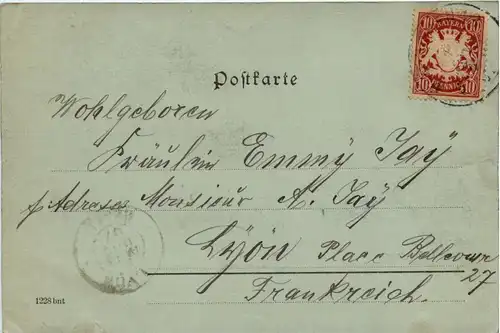 BAYERN
10 10
10 PFENNIG 10
Postkarte
Wohlgeboren
Fräulein Emmy Jäÿ
p/ Adresse Monsieur A. Jäÿ
Lÿön Place Bellecour
27
Frankreich.
1228 bnt